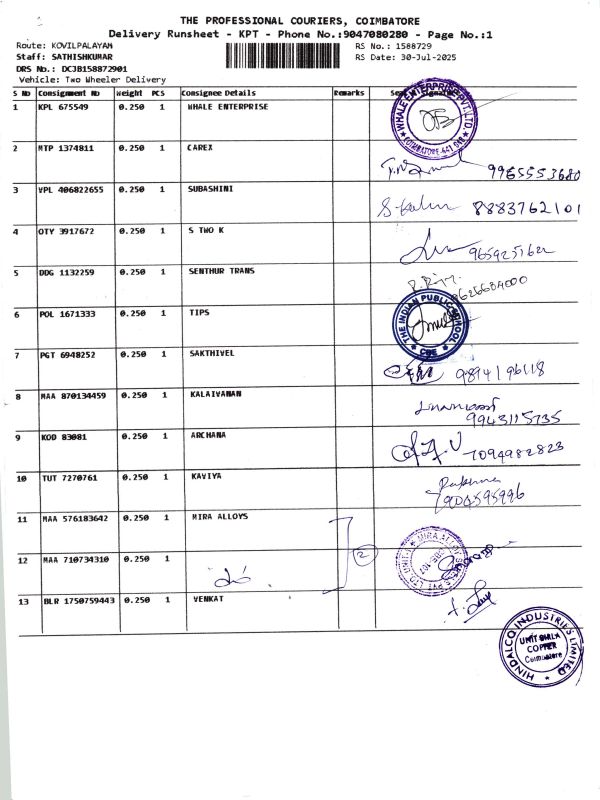 THE PROFESSIONAL COURIERS, COIMBATORE
Delivery Runsheet - KPT - Phone No.:9047080280 - Page No.:1
Route: KOVILPALAYAM RS No.: 1588729
Staff: SATHISHKUMAR RS Date: 30-Jul-2025
DRS No.: DCJB158872901
Vehicle: Two Wheeler Delivery
S No Consignment No Weight PCS Consignee Details Remarks
1 KPL 675549 0.250 1 WHALE ENTERPRISE
WHALE ENTERPRISE PVT. LTD.
COIMBATORE-641
2 MTP 1374811 0.250 1 CAREX
9965553680
3 VPL 406822655 0.250 1 SUBASHINI
8883762101
4 OTY 3917672 0.250 1 S TWO K
5 DDG 1132259 0.250 1 SENTHUR TRANS
6 POL 1671333 0.250 1 TIPS
THE INDIAN PUBLIC SCHOOL
CBE
7 PGT 6948252 0.250 1 SAKTHIVEL
9894196118
8 MAA 870134459 0.250 1 KALAIVANAN
9943115735
9 KOD 83081 0.250 1 ARCHANA
7094982823
10 TUT 7270761 0.250 1 KAVIYA
11 MAA 576183642 0.250 1 MIRA ALLOYS
2
12 MAA 710734310 0.250 1
13 BLR 1750759443 0.250 1 VENKAT
HINDALCO INDUSTRIES LIMITED
COPPER
Coimbatore